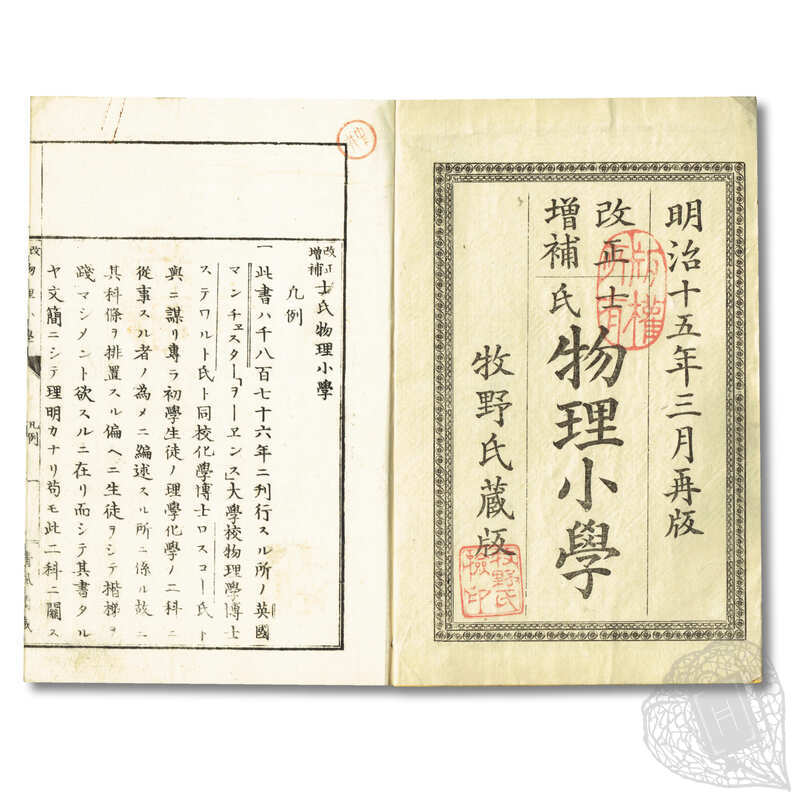 明治十五年三月再版
改正
增補
士氏物理小學
牧野氏蔵版
版權
所有
牧野氏
檢印
改正
增補
士氏物理小學
凡例
一此書ハ千八百七十六年ニ刊行スル所ノ英國
マンチェスター「ヲーエンス」大學校物理學博士
ステワルト氏ト同校化學博士ロスコー氏ト
與ニ謀リ專ラ初學生徒ノ理學化學ノ二科ニ
從事スル者ノ為メニ編述スル所ニ係ル故ニ
其科條ヲ排置スル偏ヘニ生徒ヲシテ楷梯ヲ
踐マシメント欲スルニ在リ而シテ其書タル
ヤ文簡ニシテ理明カナリ苟モ此二科ニ關ス
改
物理小學
凡例
一
H